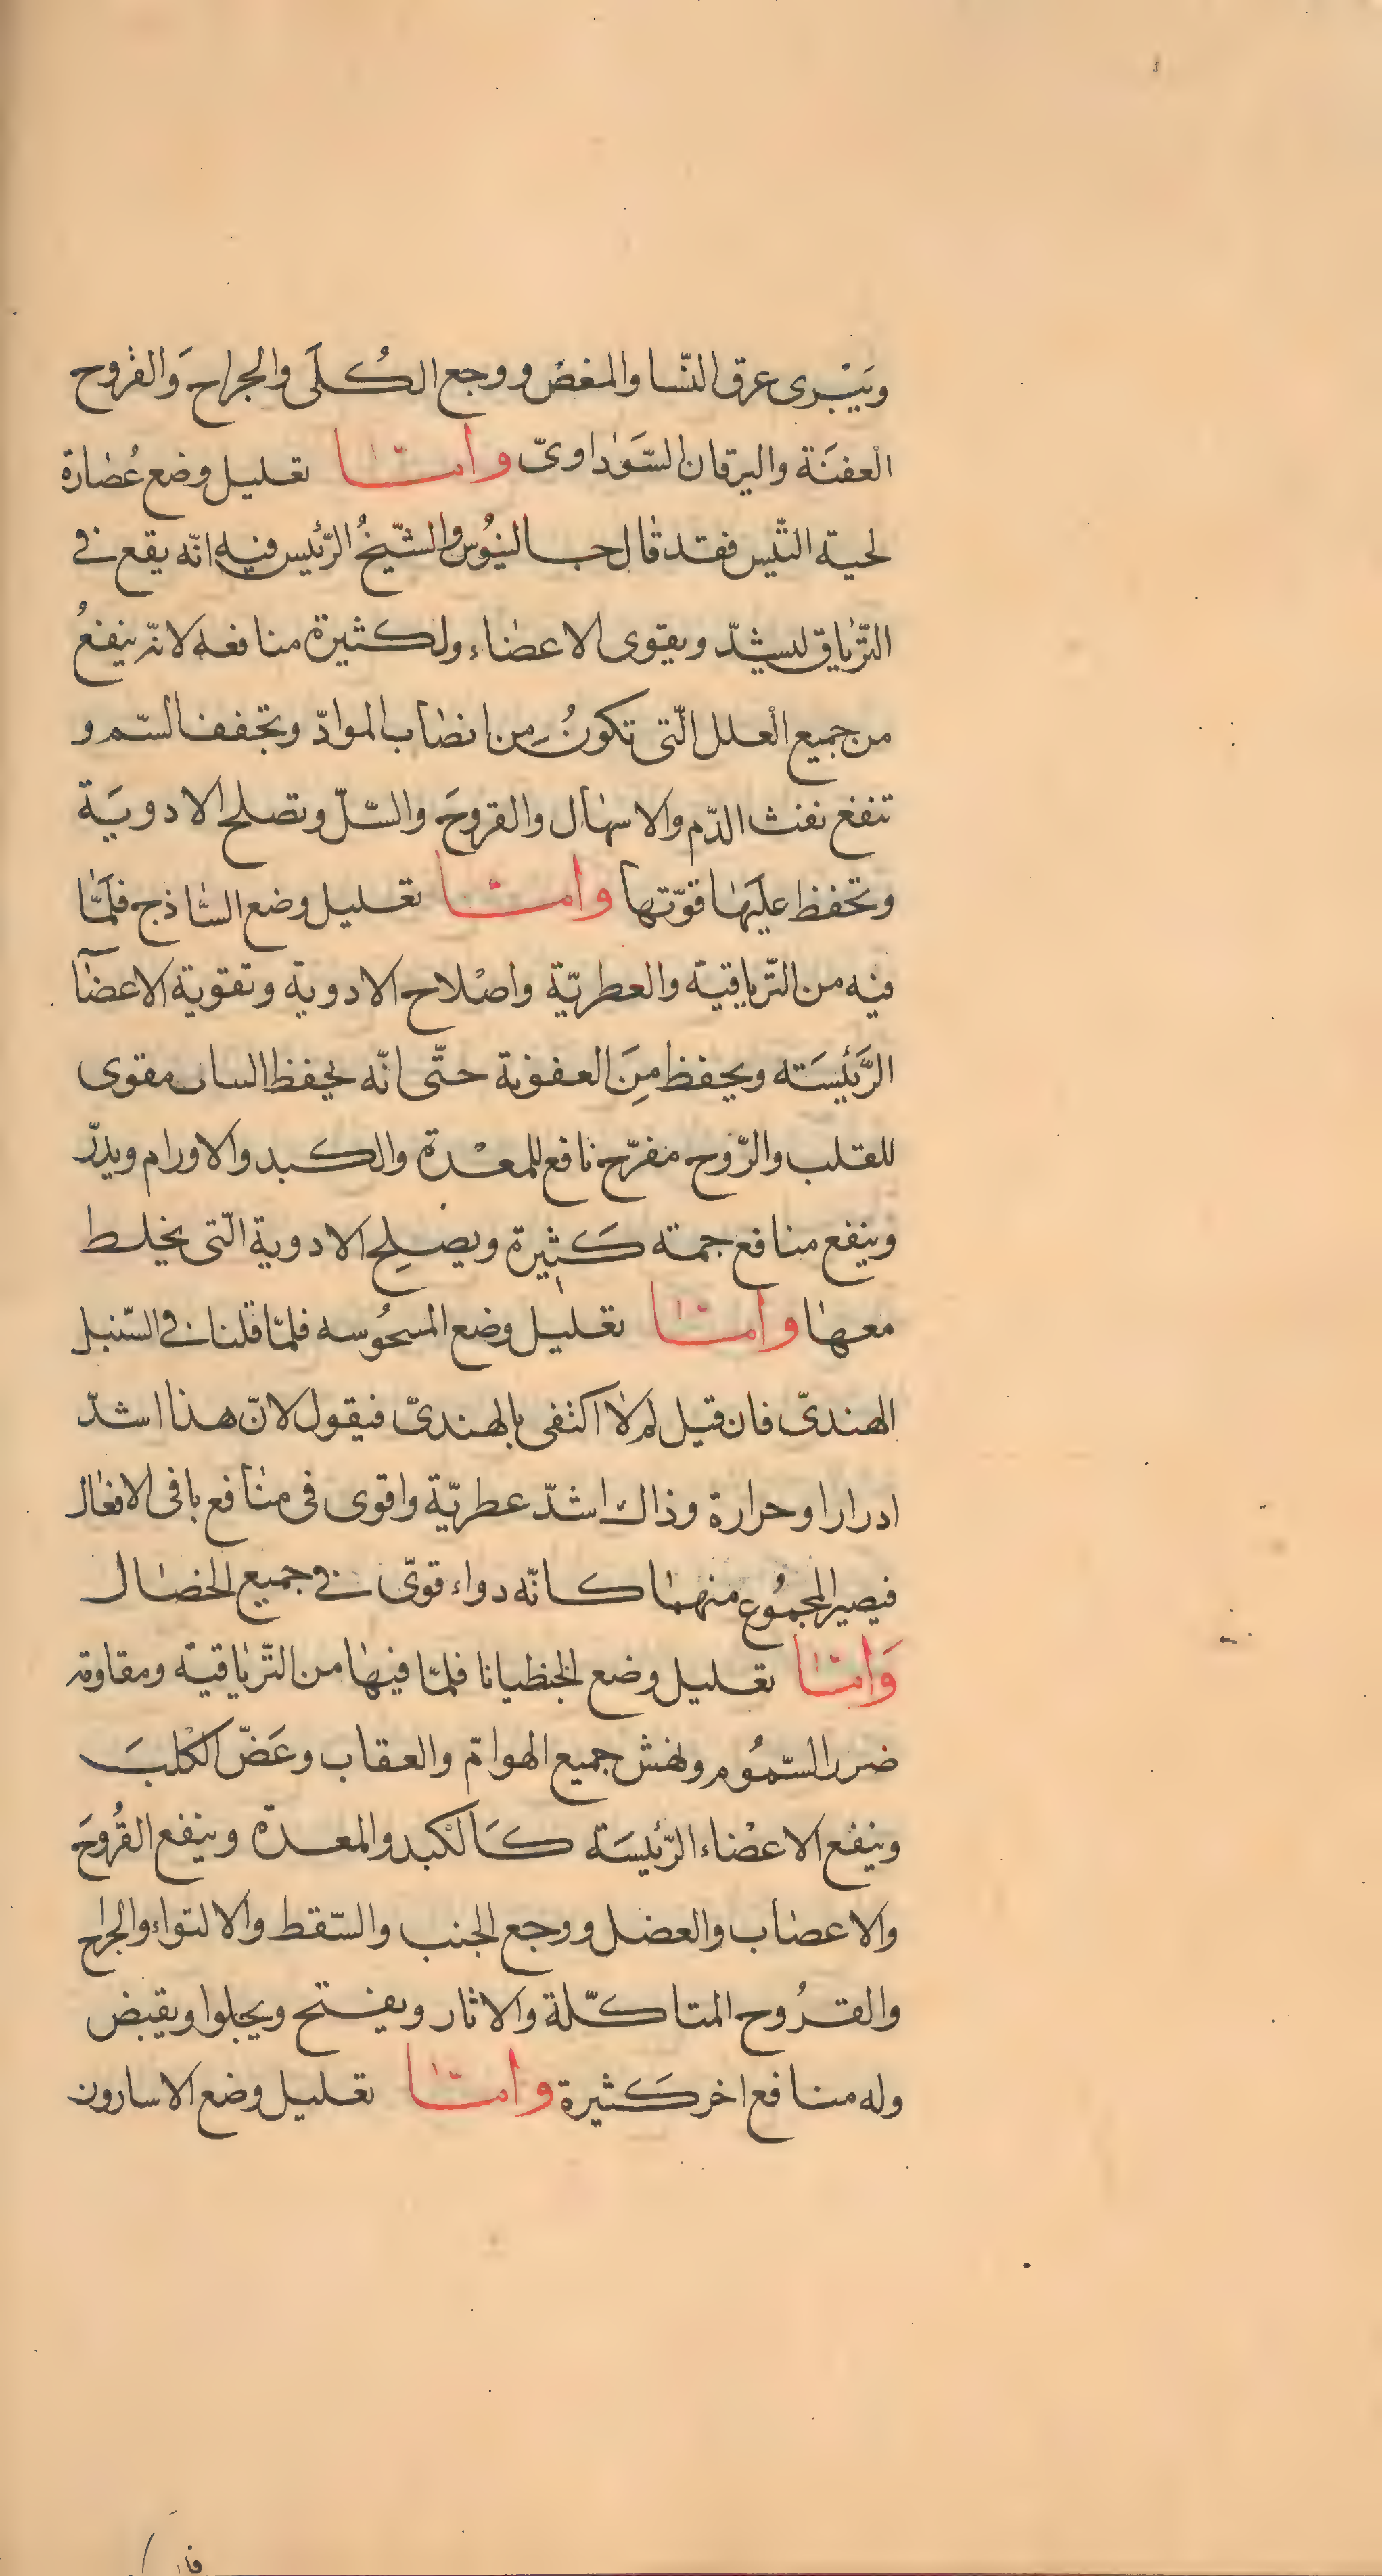 ويَبْرى عرق النّسا والمغصْ ووجع الكُلَى والجراح وَالقروح
العفنَة واليرقان السَّوداوىّ وامّا تعليل وضع عُصٰارة
لحية التّيس فقد قال جالينُوس والشّيخُ الرّئيس فيه انّه يقع فى
التّرياق ليشدّ ويقوى الاعضٰاء ولكثيرة منافعه لانّه ينفعُ
من جميع العلل الّتى تكونُ مِن انصٰاب الموادّ وتجفف السّم و
تنفع نفث الدّم والاسهٰال والقروحَ والسّلّ وتصلح الادويَة
وتحفظ عليَهٰا قوّتها وامّا تعليل وضع السّاذج فلَمّا
فيه من التّرياقية والعطريّة واصْلاح الادوية وتقوية الاعضآ
الرَّئيسَته ويحفظ مِنَ العفونة حتّى انّه يحفظ الساب مقوى
للقلب والرّوح مفرّح نافع للمعْدة والكبد والاورام ويدرّ
وينفع منافع جمته كَثيرة ويصلِح الادوية الّتى يخلط
معهٰا وامّا تعليل وضع المسحُوسه فلمّا قلنا فى السّنبل
الهندىّ فان قيل لم لا اكتفى بالهندىّ فيقول لانّ هذا اشدّ
ادرارا وحرارة وذاك اشدّ عطريّة واقوى فى منٰافع باقى الافعٰال
فيصير المجمُوع منهمٰا كانّه دواء قوىّ فى جميع الخصٰال
وَامّا تعليل وضع الجنطيانا فلمّا فيهٰا من التّرياقية ومقاومة
ضرر السّمُوم ولهش جميع الهوامّ والعقاب وعَضّ الكلْبَ
وينفع الاعضٰاء الرّئيسَة كَالكبد والمعدة وينفع القُروحَ
والاعصٰاب والعضل ووجع الجنب والسّقط والالتواء والجراح
والقرُوح المتاكّلة والاثار ويفتح ويجلوا ويقبض
وله منافع اخر كَثيرة وامّا تعليل وضع الاسارون